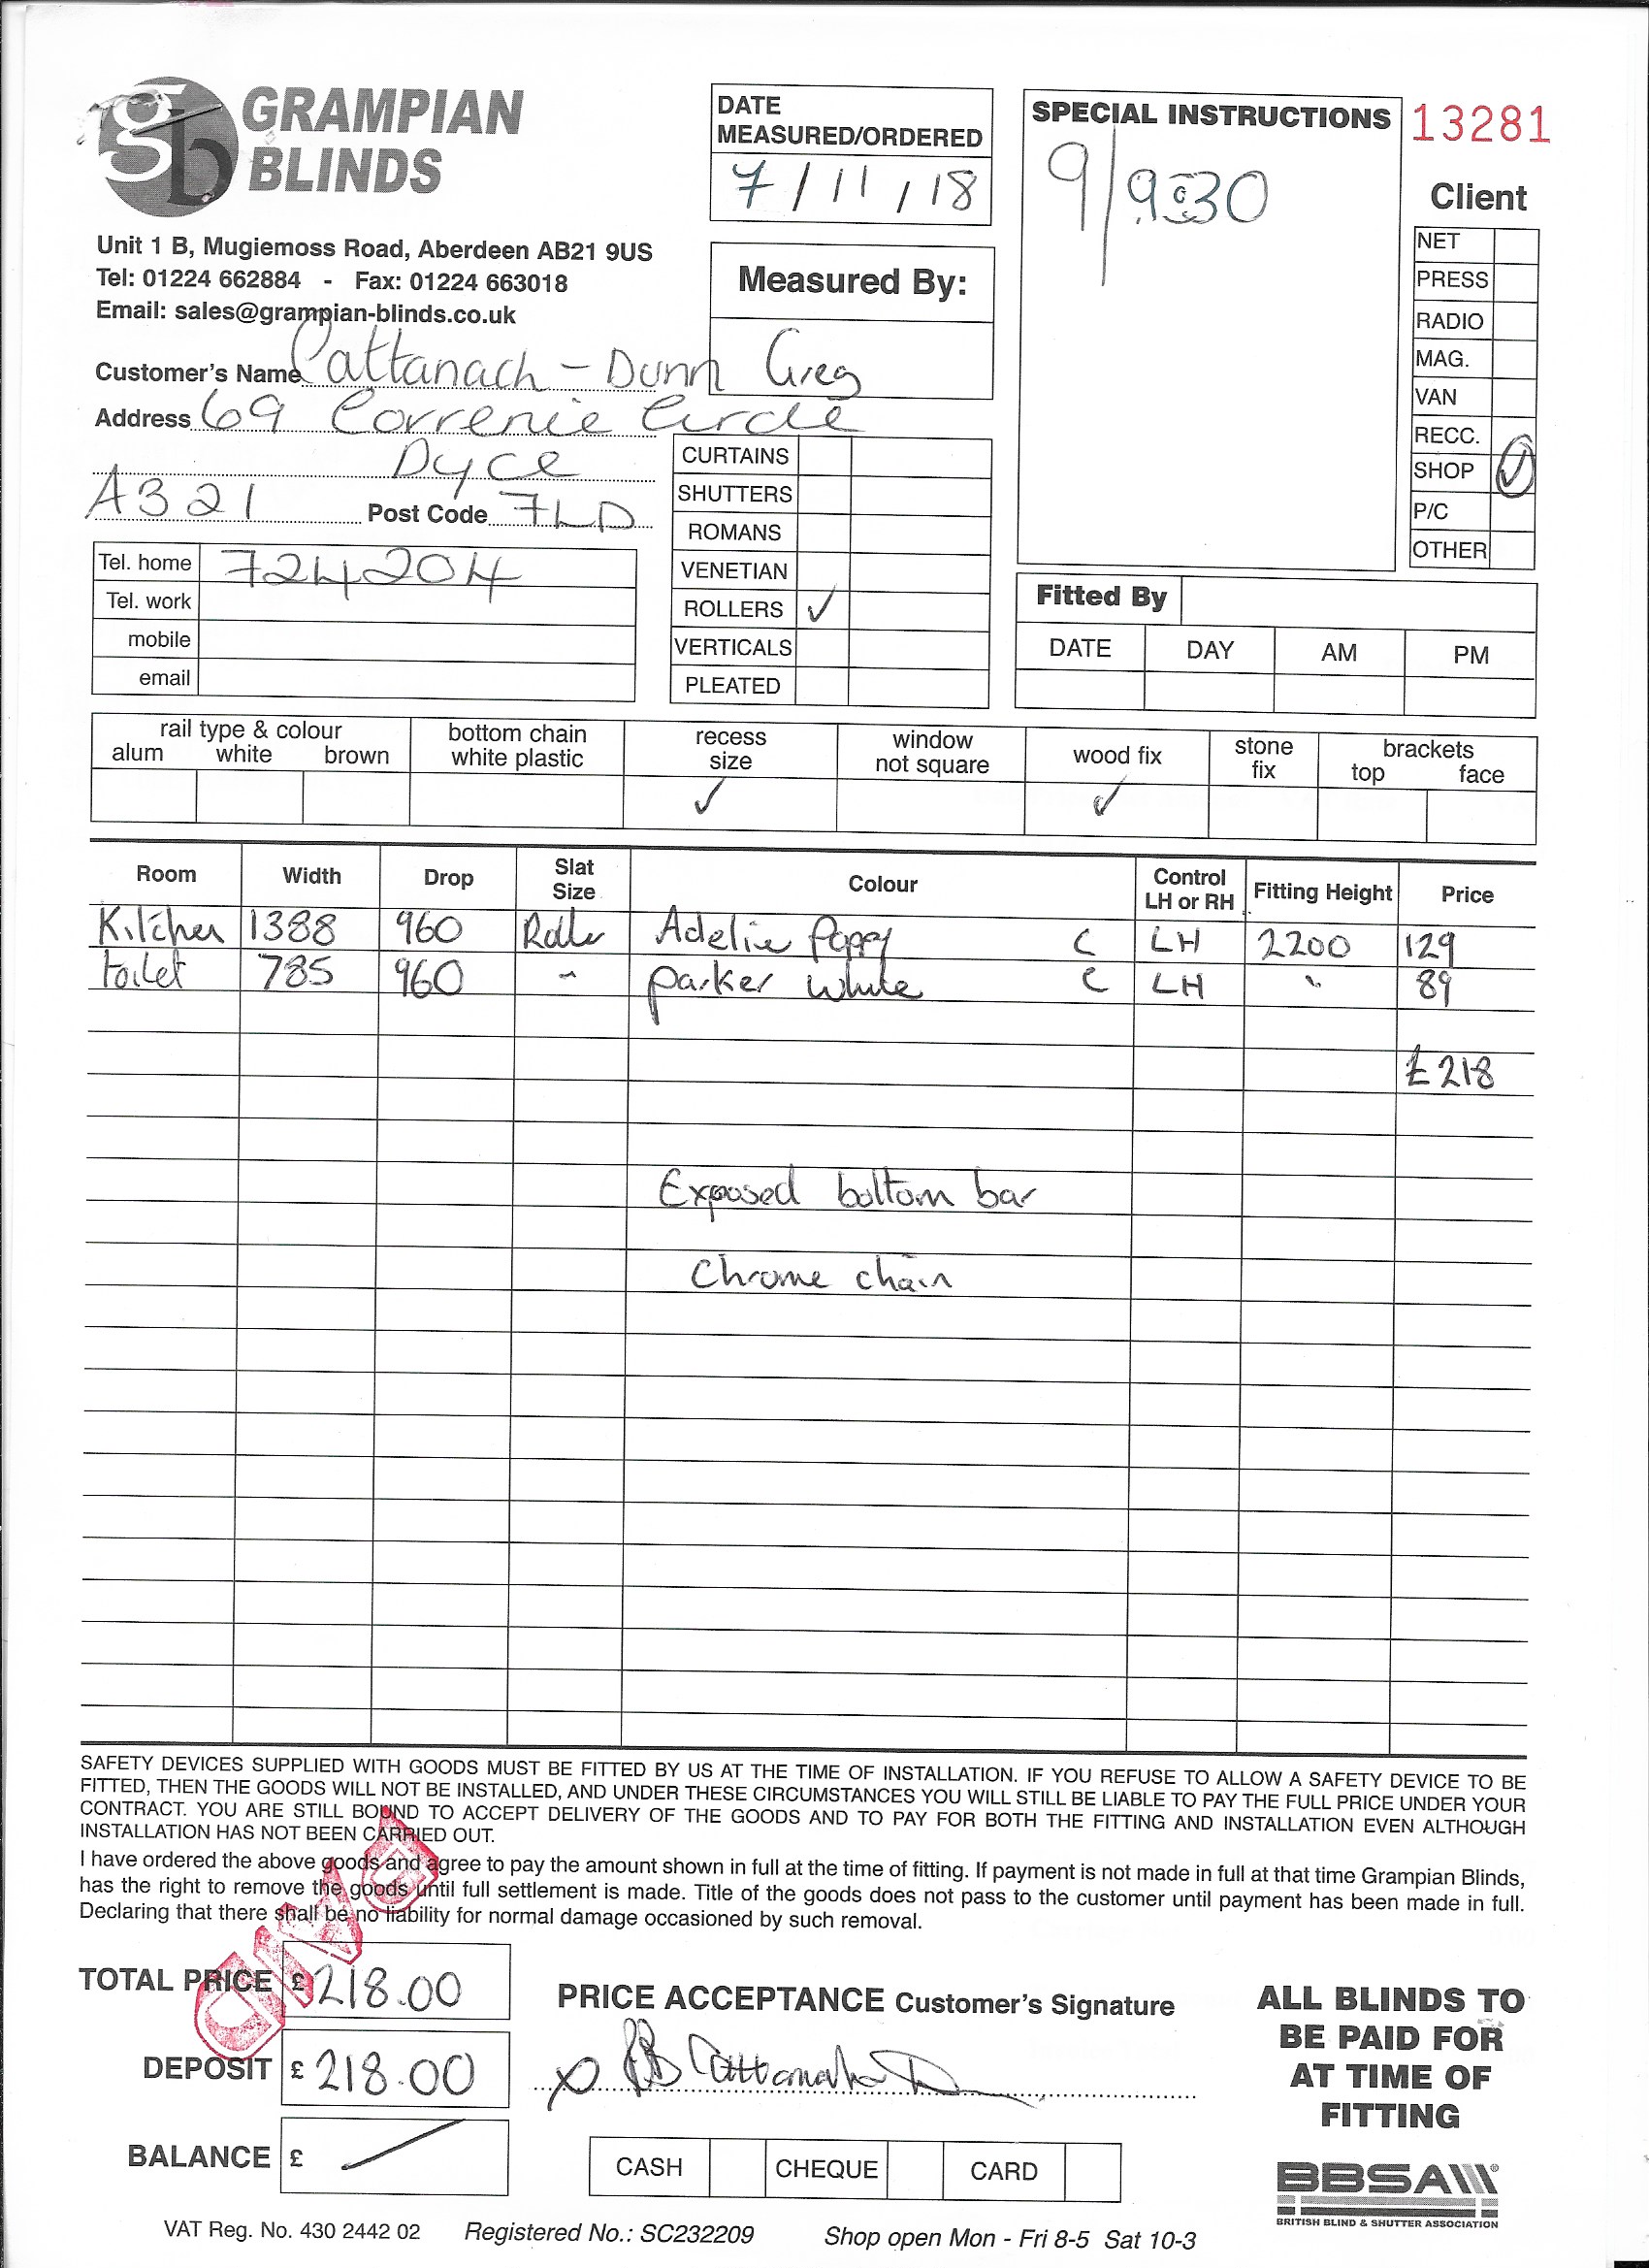 gb GRAMPIAN BLINDS
Unit 1 B, Mugiemoss Road, Aberdeen AB21 9US
Tel: 01224 662884 - Fax: 01224 663018
Email: sales@grampian-blinds.co.uk
Customer's Name Cattanach-Dunn
Address 69 Correnie Circle
Dyce
AB21 Post Code 7LD
Tel. home 724204
Tel. work
mobile
email
DATE MEASURED/ORDERED
7/11/18
Measured By:
Greg
CURTAINS
SHUTTERS
ROMANS
VENETIAN
ROLLERS ✓
VERTICALS
PLEATED
SPECIAL INSTRUCTIONS
9/9:30
13281
Client
NET
PRESS
RADIO
MAG.
VAN
RECC.
SHOP ✓
P/C
OTHER
Fitted By
DATE DAY AM PM
rail type & colour
alum white brown
bottom chain white plastic
recess size ✓
window not square
wood fix ✓
stone fix
brackets
top face
Room Width Drop Slat Size Colour Control LH or RH Fitting Height Price
Kitchen 1388 960 Roller Adelie Poppy C LH 2200 129
toilet 785 960 " parker white C LH " 89
£218
Exposed bottom bar
Chrome chain
SAFETY DEVICES SUPPLIED WITH GOODS MUST BE FITTED BY US AT THE TIME OF INSTALLATION. IF YOU REFUSE TO ALLOW A SAFETY DEVICE TO BE
FITTED, THEN THE GOODS WILL NOT BE INSTALLED, AND UNDER THESE CIRCUMSTANCES YOU WILL STILL BE LIABLE TO PAY THE FULL PRICE UNDER YOUR
CONTRACT. YOU ARE STILL BOUND TO ACCEPT DELIVERY OF THE GOODS AND TO PAY FOR BOTH THE FITTING AND INSTALLATION EVEN ALTHOUGH
INSTALLATION HAS NOT BEEN CARRIED OUT.
I have ordered the above goods and agree to pay the amount shown in full at the time of fitting. If payment is not made in full at that time Grampian Blinds,
has the right to remove the goods until full settlement is made. Title of the goods does not pass to the customer until payment has been made in full.
Declaring that there shall be no liability for normal damage occasioned by such removal.
PAID
TOTAL PRICE £218.00
DEPOSIT £218.00
BALANCE £ /
PRICE ACCEPTANCE Customer's Signature
x
CASH CHEQUE CARD
ALL BLINDS TO
BE PAID FOR
AT TIME OF
FITTING
BBSA
BRITISH BLIND & SHUTTER ASSOCIATION
VAT Reg. No. 430 2442 02 Registered No.: SC232209 Shop open Mon - Fri 8-5 Sat 10-3